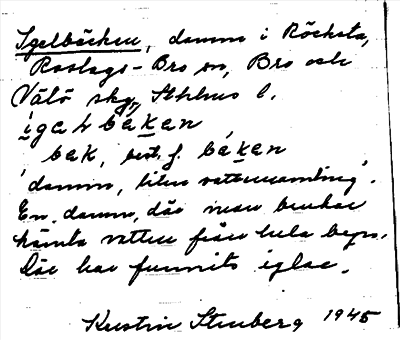 Igelbäcken, damm i Röcksta,
Roslags-Bro sn, Bro och
Vätö skg, Sthlms l.
igəlbäkən
bäk, best. f. bäkən
'damm, liten vattensamling'.
En damm, där man brukar
hämta vatten från hela byn.
Där har funnits iglar.
Kerstin Stenberg 1945